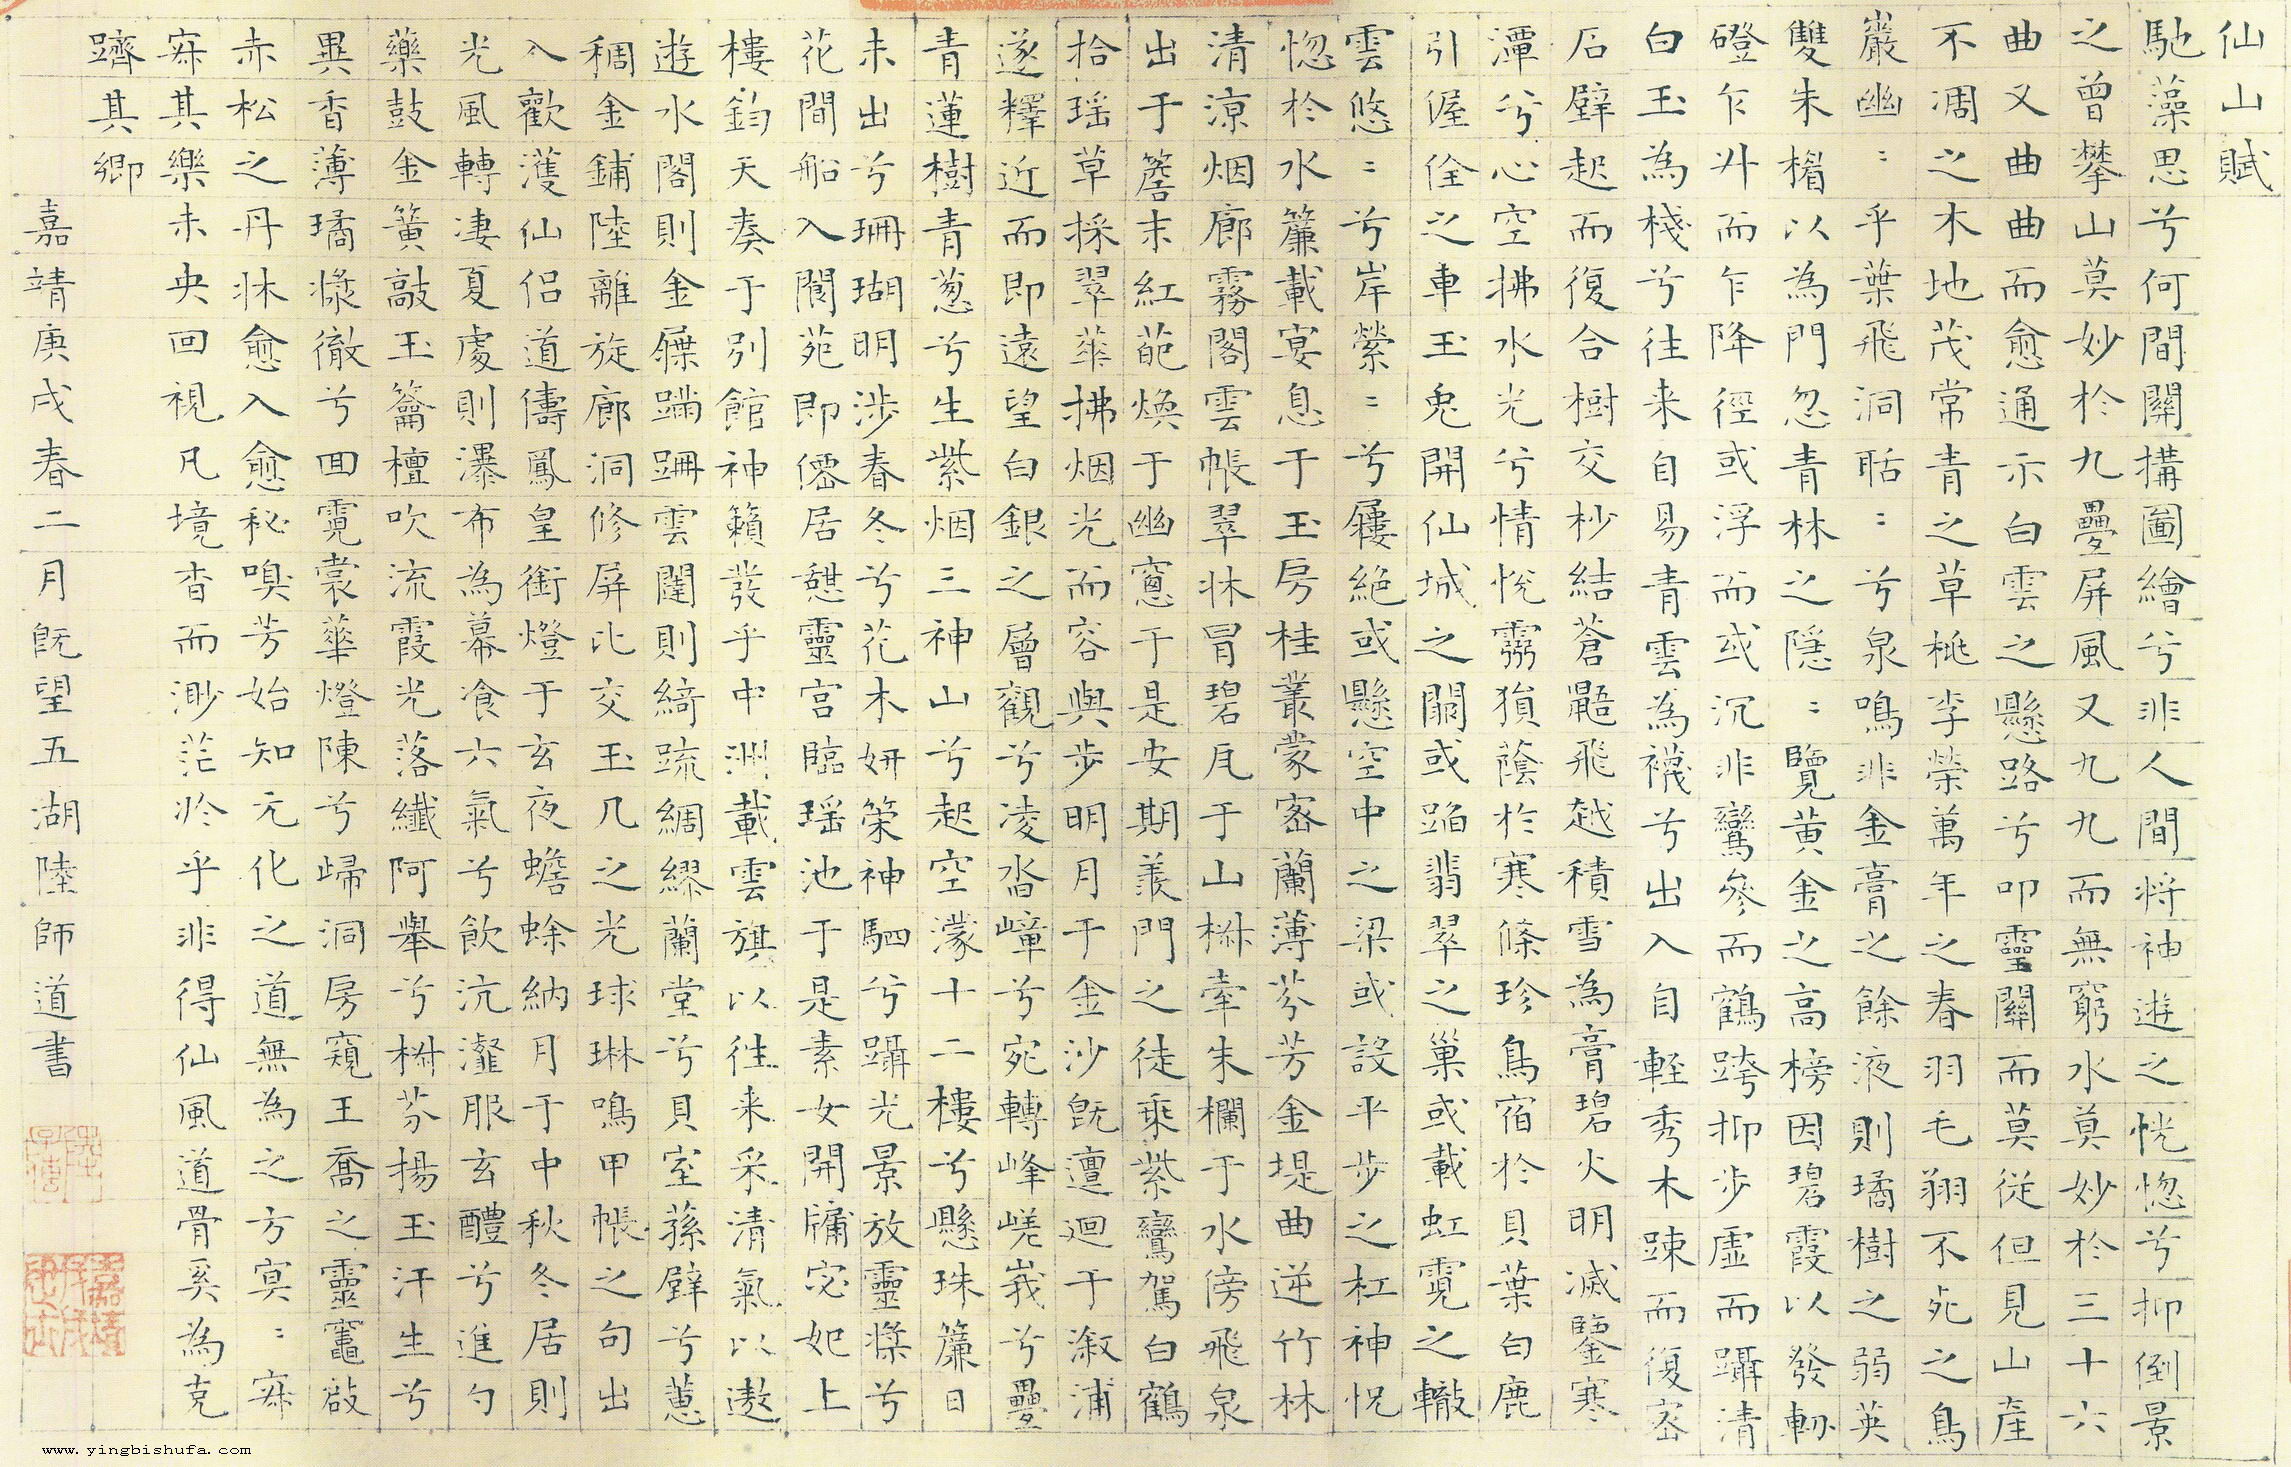 仙山賦
馳藻思兮何間關構圖繪兮非人間将神遊之恍惚兮抑倒景
之曾攀山莫妙於九疊屏風又九九而無窮水莫妙於三十六
曲又曲曲而愈通示白雲之懸路兮叩靈關而莫從但見山産
不凋之木地茂常青之草桃李榮萬年之春羽毛翔不死之鳥
巖幽〻乎葉飛洞聒〻兮泉鳴非金膏之餘液則璚樹之弱英
雙朱楣以為門忽青林之隱〻覽黄金之高榜因碧霞以發軔
磴乍升而乍降徑或浮而或沉非鸞驂而鶴跨抑步虛而躡清
白玉為棧兮往来自易青雲為襪兮出入自輕秀木踈而復密
石壁起而復合樹交杪結蒼鼯飛越積雪為膏碧火明滅鑒寒
潭兮心空拂水光兮情恱霧猿蔭於寒條珍鳥宿於貝葉白鹿
引偓佺之車玉兔開仙城之闕或蹈翡翠之巢或載虹霓之轍
雲悠〻兮岸縈〻兮屨絕或懸空中之梁或設平步之杠神怳
惚於水簾載宴息于玉房桂叢蒙密蘭薄芬芳金堤曲逆竹林
清涼烟廊霧閣雲帳翠牀冒碧瓦于山椒牽朱欄于水傍飛泉
出于簷末紅葩煥于幽窻于是安期羨門之徒乘紫鸞駕白鶴
拾瑶草採翠華拂烟光而容與步明月于金沙旣邅迴于溆浦
遂釋近而即遠望白銀之層觀兮凌沓嶂兮宛轉峰嵯峩兮疊
青蓮樹青葱兮生紫烟三神山兮起空濛十二樓兮懸珠簾日
未出兮珊瑚明涉春冬兮花木妍榮神駟兮躡光景放靈槳兮
花間船入閬苑即僊居憩靈宫臨瑶池于是素女開牗宓妃上
樓鈞天奏于别館神籟發乎中洲載雲旗以往来采清氣以遨
遊水閣則金屧蹣跚雲闥則綺疏綢繆蘭堂兮貝室蓀壁兮蕙
稠金鋪陸離旋廊洞修屏比交玉几之光球琳鳴甲帳之句出
入歡濩仙侣道儔鳳皇銜燈于玄夜蟾蜍納月于中秋冬居則
光風轉淒夏處則瀑布為幕飡六氣兮飲沆瀣服玄醴兮進勺
藥鼓金簧敲玉籥檀吹流霞光落纖阿舉兮椒芬揚玉汗生兮
異香薄璚漿徹兮囬霓裳華燈陳兮歸洞房窺王喬之靈竈啟
赤松之丹牀愈入愈秘嗅芳始知元化之道無為之方寞〻寂
寂其樂未央回視凡境杳而渺茫於乎非得仙風道骨奚為克
躋其鄉
嘉靖庚戌春二月旣望五湖陸師道書
www.yingbishufa.com